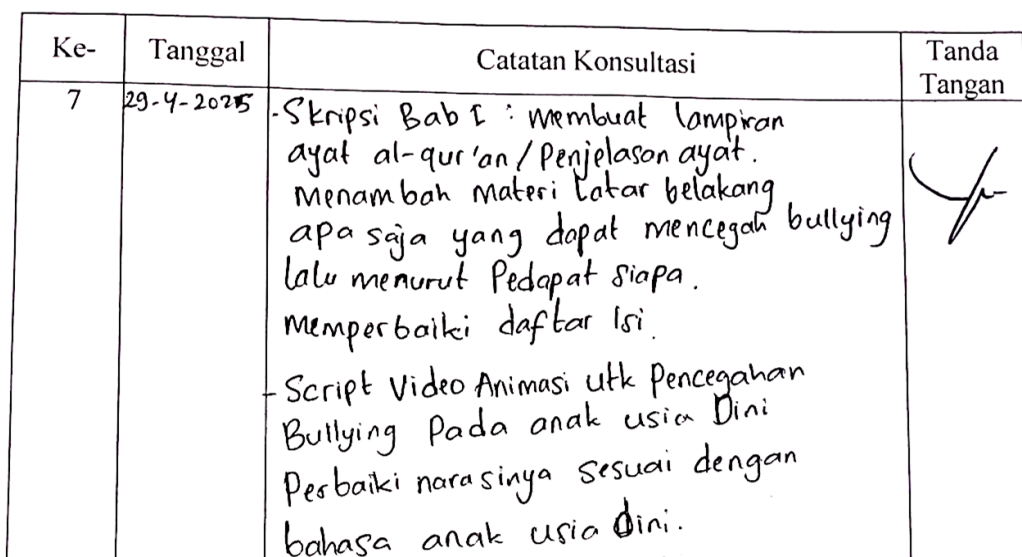 Ke- Tanggal Catatan Konsultasi Tanda Tangan
7 29-4-2025 -Skripsi Bab I : membuat lampiran
ayat al-qur'an / Penjelasan ayat.
Menambah materi Latar belakang
apa saja yang dapat mencegah bullying
lalu menurut Pedapat siapa.
memperbaiki daftar isi.
- Script Video Animasi utk Pencegahan
Bullying Pada anak usia Dini
Perbaiki narasinya sesuai dengan
bahasa anak usia dini.